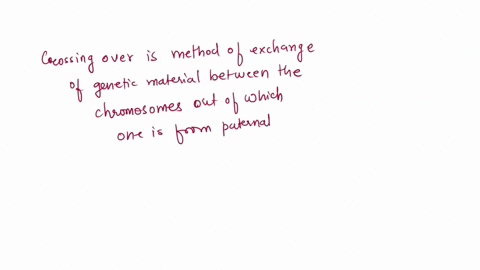 Crossing over is method of exchange
of genetic material between the
chromosomes out of which
one is from paternal